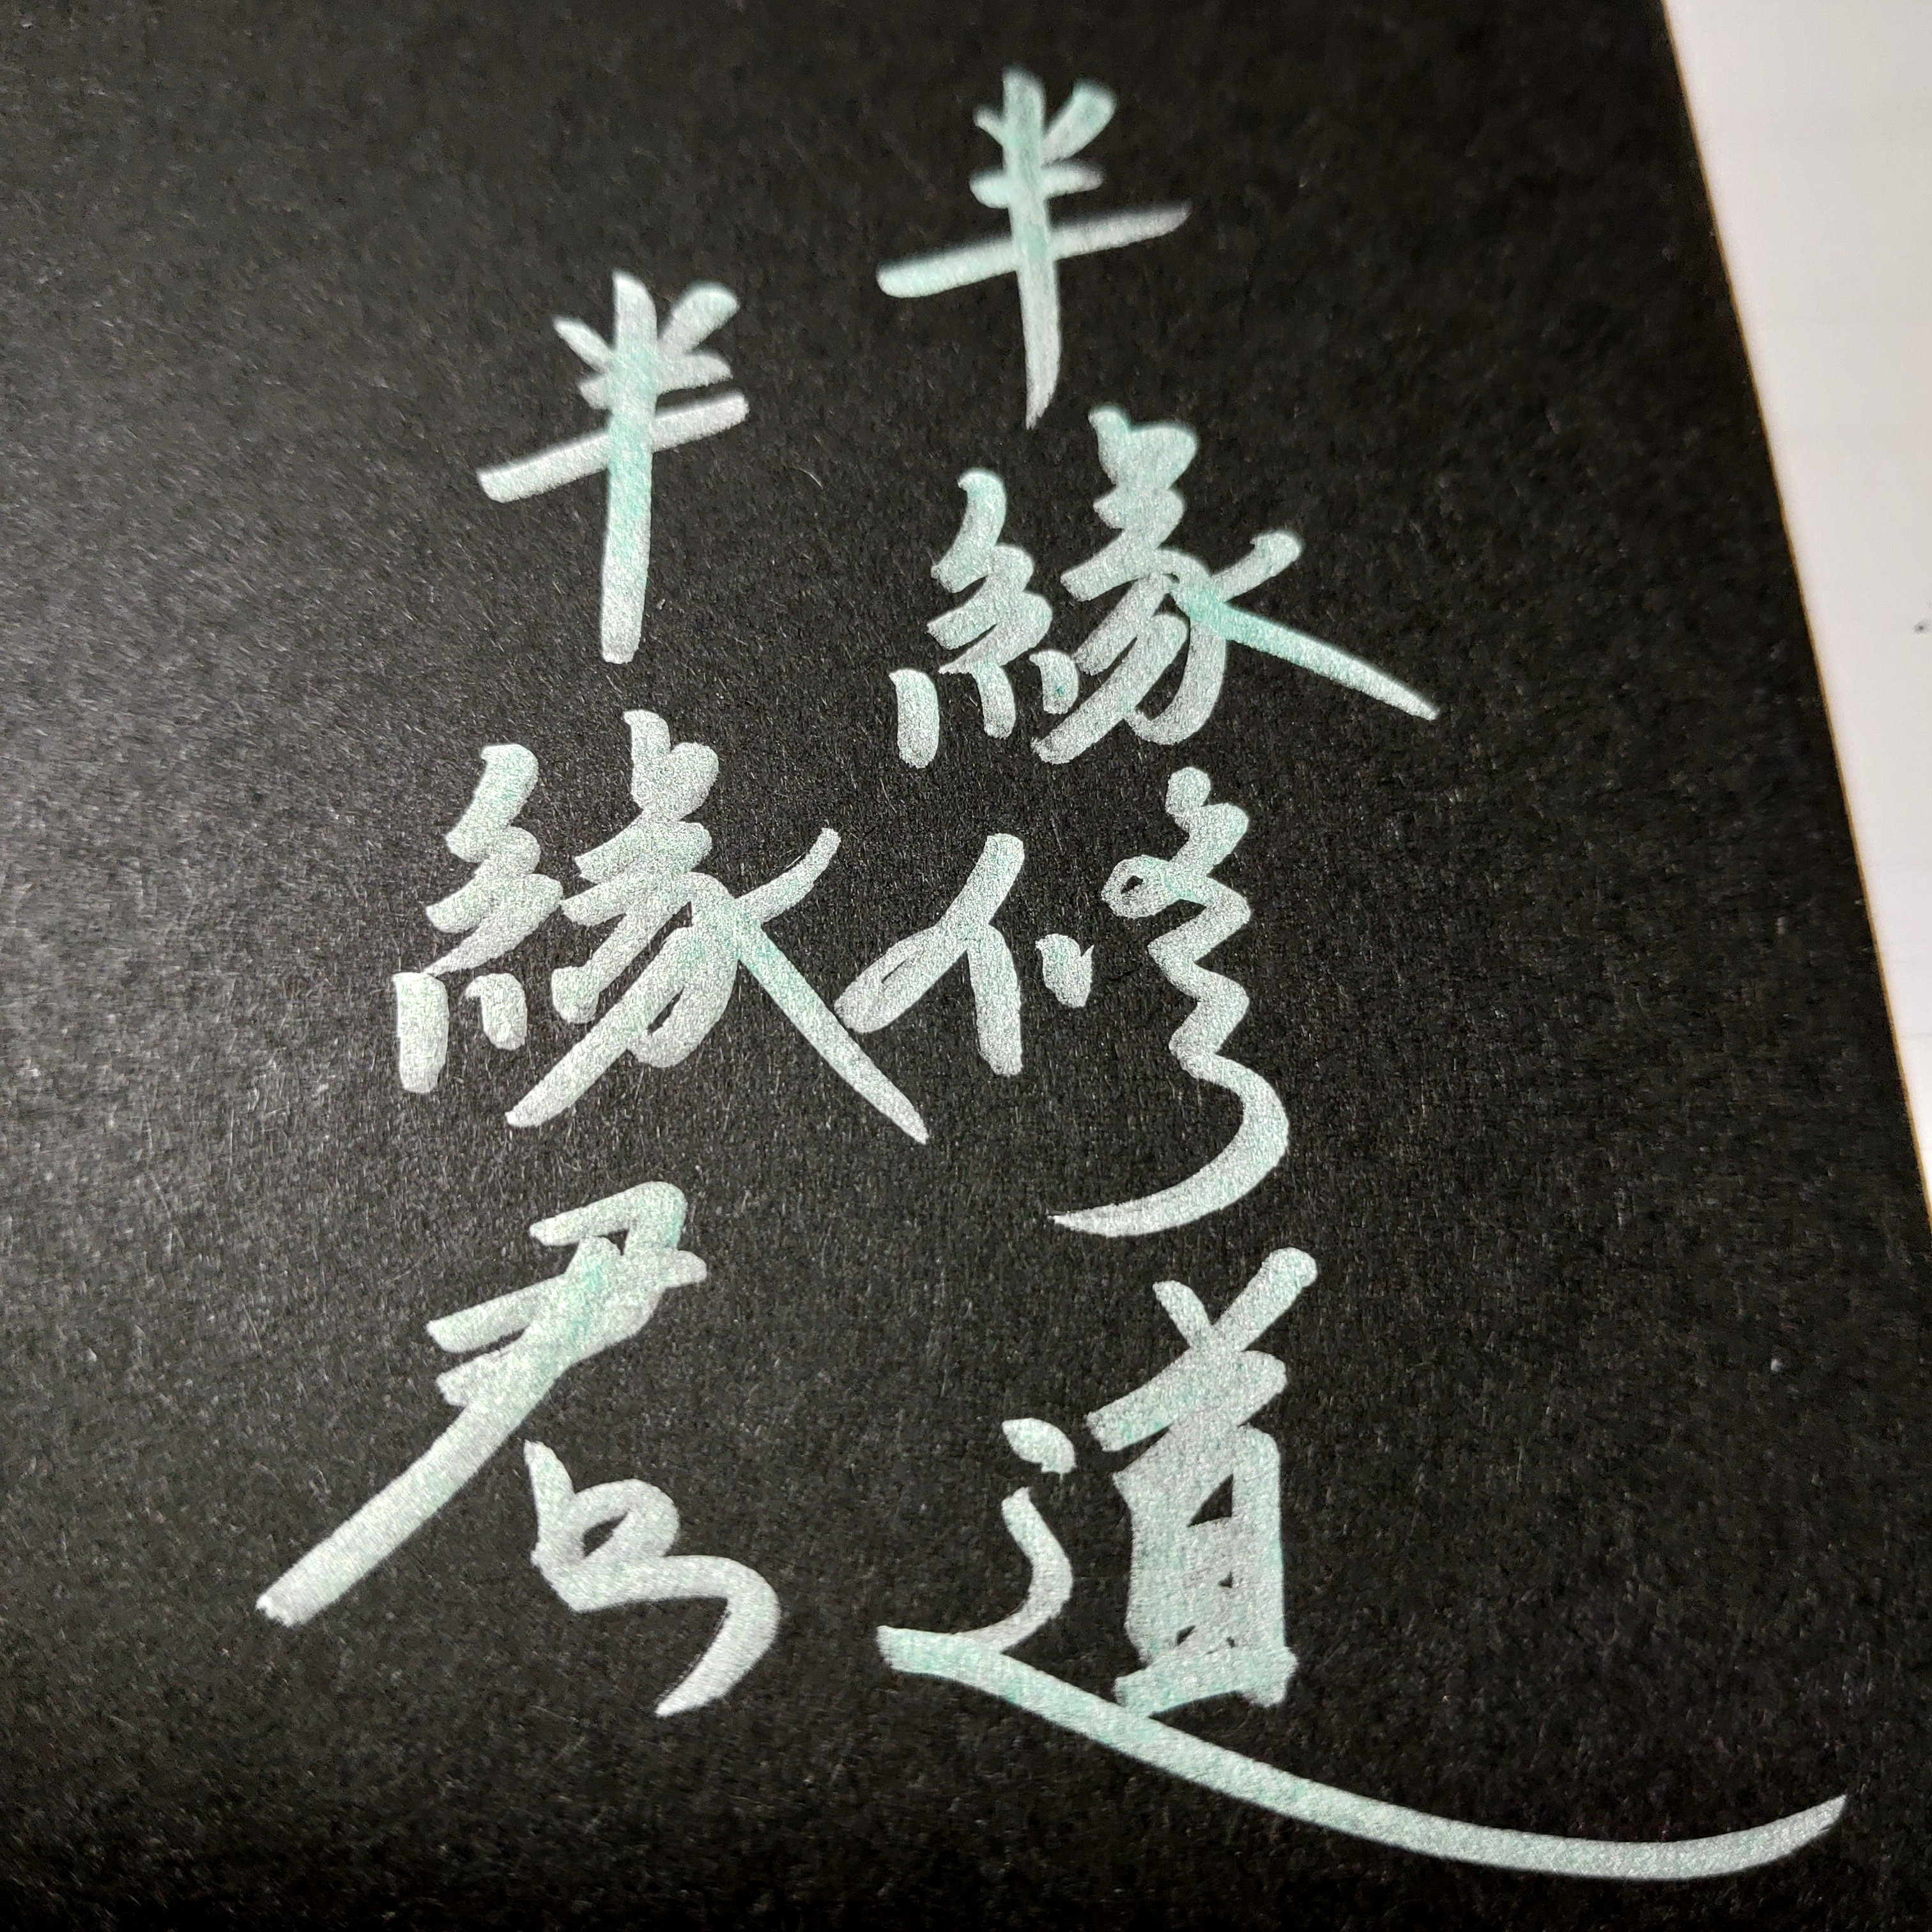 半緣修道
半緣君